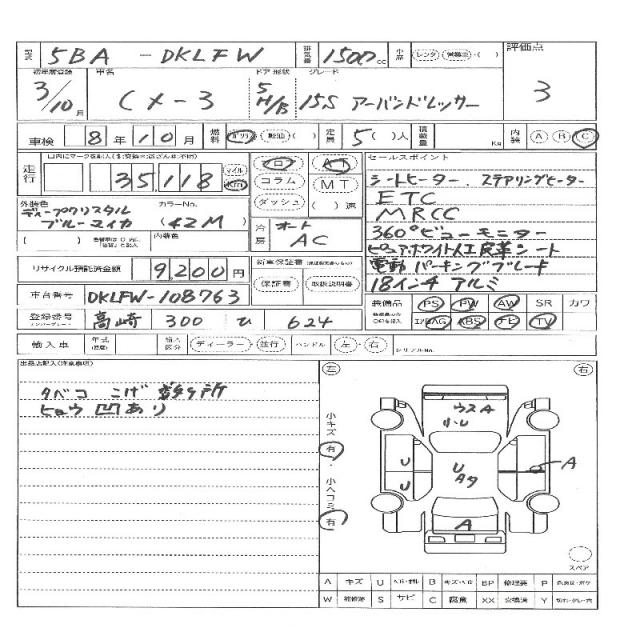 5BA - DKLFW 排気量 1500 cc 小車 レンタ 営業車 ( ) 評価点
初年度登録 車名 ドア 形状 グレード
3/10月 CX-3 5 H/B 15S アーバンドレッサー 3
車検 8年10月 燃料 ガソリン 軽油 ( ) 定員 5( )人 積載量 Kg 内装 A B C
走行 35,118 マイル Km フロア コラム ダッシュ AT MT ( )速
セールスポイント
シートヒーター、ステアリングヒーター
ETC
MRCC
360°ビューモニター
ピュアホワイト人工皮革シート
電動パーキングブレーキ
18インチ アルミ
外装色 カラーNo.
ディープクリスタル
ブルーマイカ (42M)
内装色
冷房 オート AC
リサイクル預託済金額 9,200円
新車保証書
保証書 取扱説明書
車台番号 DKLFW-108763
装備品 PS PW AW SR カワ
エアBAG ABS ナビ TV
登録番号 高崎 300 ひ 624
輸入車 年式 輸入区分 ディーラー・並行 ハンドル 左・右 シリアルNo.
出品店記入(注意事項)
タバコ こげ 数ヶ所
ヒョウ凹あり
左 右
小キズ 有・小ヘコミ 有
ウスA
小U
U
U
U
Aタ
A
A
スペア
A キズ U ヘコミ B キズ・ヘコミ BP 修理要 P
W 補修跡 S サビ C 腐食 XX 交換済 Y